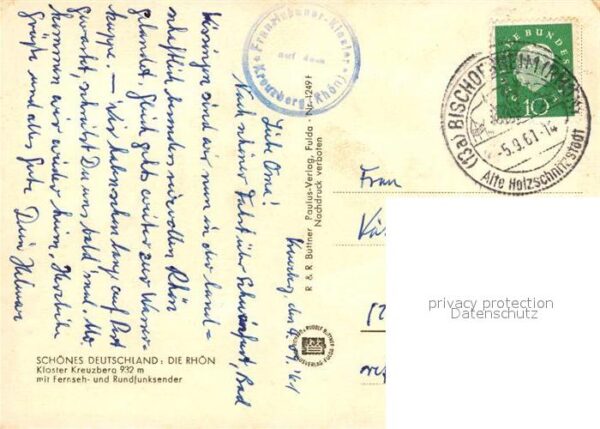 Kreuzberg, den 4. 09. '61
Liebe Oma!
Nach schöner Fahrt über Schweinfurt, Bad
Kissingen sind wir nun in der land-
schaftlich besonders reizvollen Rhön
gelandet. Gleich gehts weiter zur Wasser-
kuppe. – Wir haben schon lang auf Post
gewartet, schreibst Du uns bald mal. Mo.
kommen wir wieder heim. Herzliche
Grüße und alles Gute Dein Helmar
Franziskaner-Kloster
auf dem
Kreuzberg (Rhön)
R & R Büttner Paulus-Verlag, Fulda Nr. 1249 F
Nachdruck verboten
SCHÖNES DEUTSCHLAND: DIE RHÖN
Kloster Kreuzberg 932 m
mit Fernseh- und Rundfunksender
BUNDES
10
(13a) BISCHOF
-5.9.61-14
Alte Holzschnitzstadt
Frau
privacy protection
Datenschutz